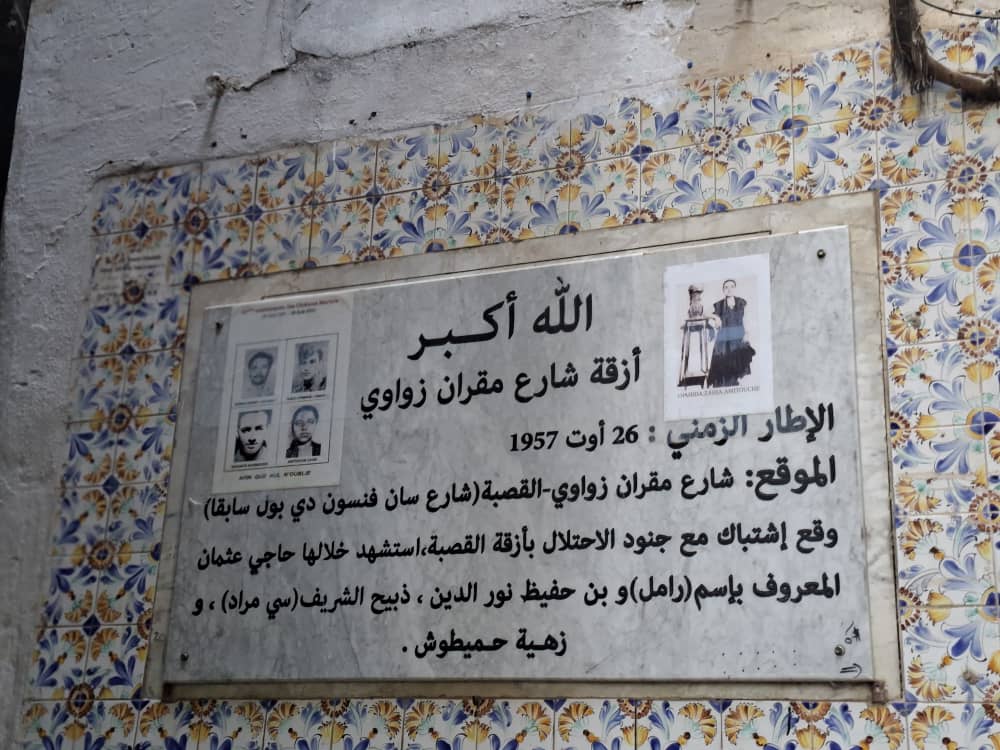 الله أكبر
أزقة شارع مقران زواوي
الإطار الزمني : 26 أوت 1957
الموقع: شارع مقران زواوي-القصبة(شارع سان فنسون دي بول سابقا)
وقع إشتباك مع جنود الاحتلال بأزقة القصبة،استشهد خلالها حاجي عثمان
المعروف بإسم(رامل)و بن حفيظ نور الدين ، ذبيح الشريف(سي مراد) ، و
زهية حميطوش .
AFIN QUE NUL N'OUBLIE